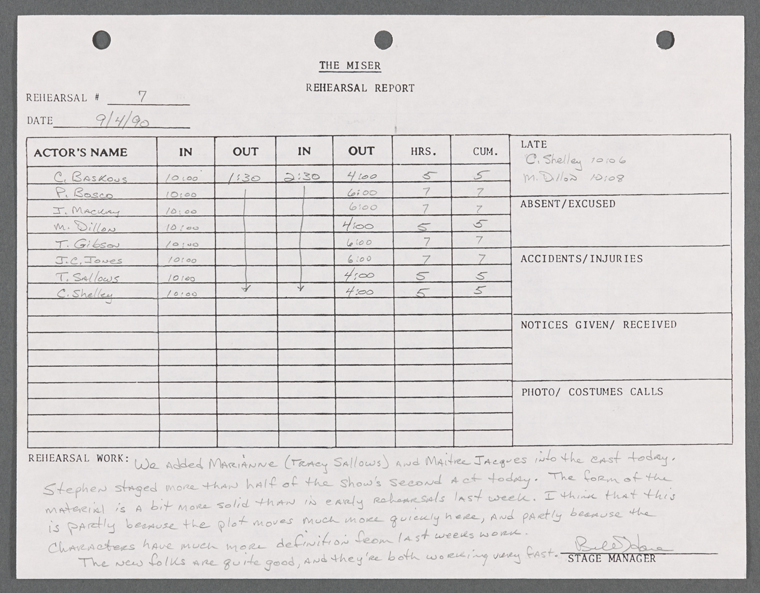 THE MISER
REHEARSAL REPORT
REHEARSAL # 7
DATE 9/4/90
ACTOR'S NAME IN OUT IN OUT HRS. CUM.
C. Baskous 10:00 1:30 2:30 4:00 5 5
P. Bosco 10:00 6:00 7 7
J. Mackay 10:00 6:00 7 7
M. Dillon 10:00 4:00 5 5
T. Gibson 10:00 6:00 7 7
J.C. Jones 10:00 6:00 7 7
T. Sallows 10:00 4:00 5 5
C. Shelley 10:00 4:00 5 5
LATE
C. Shelley 10:06
M. Dillon 10:08
ABSENT/EXCUSED
ACCIDENTS/INJURIES
NOTICES GIVEN/ RECEIVED
PHOTO/ COSTUMES CALLS
REHEARSAL WORK: We added Marianne (Tracy Sallows) and Maitre Jacques into the cast today.
Stephen staged more than half of the show's second act today. The form of the
material is a bit more solid than in early rehearsals last week. I think that this
is partly because the plot moves much more quickly here, and partly because the
characters have much more definition from last weeks work.
The new folks are quite good, and they're both working very fast.
STAGE MANAGER